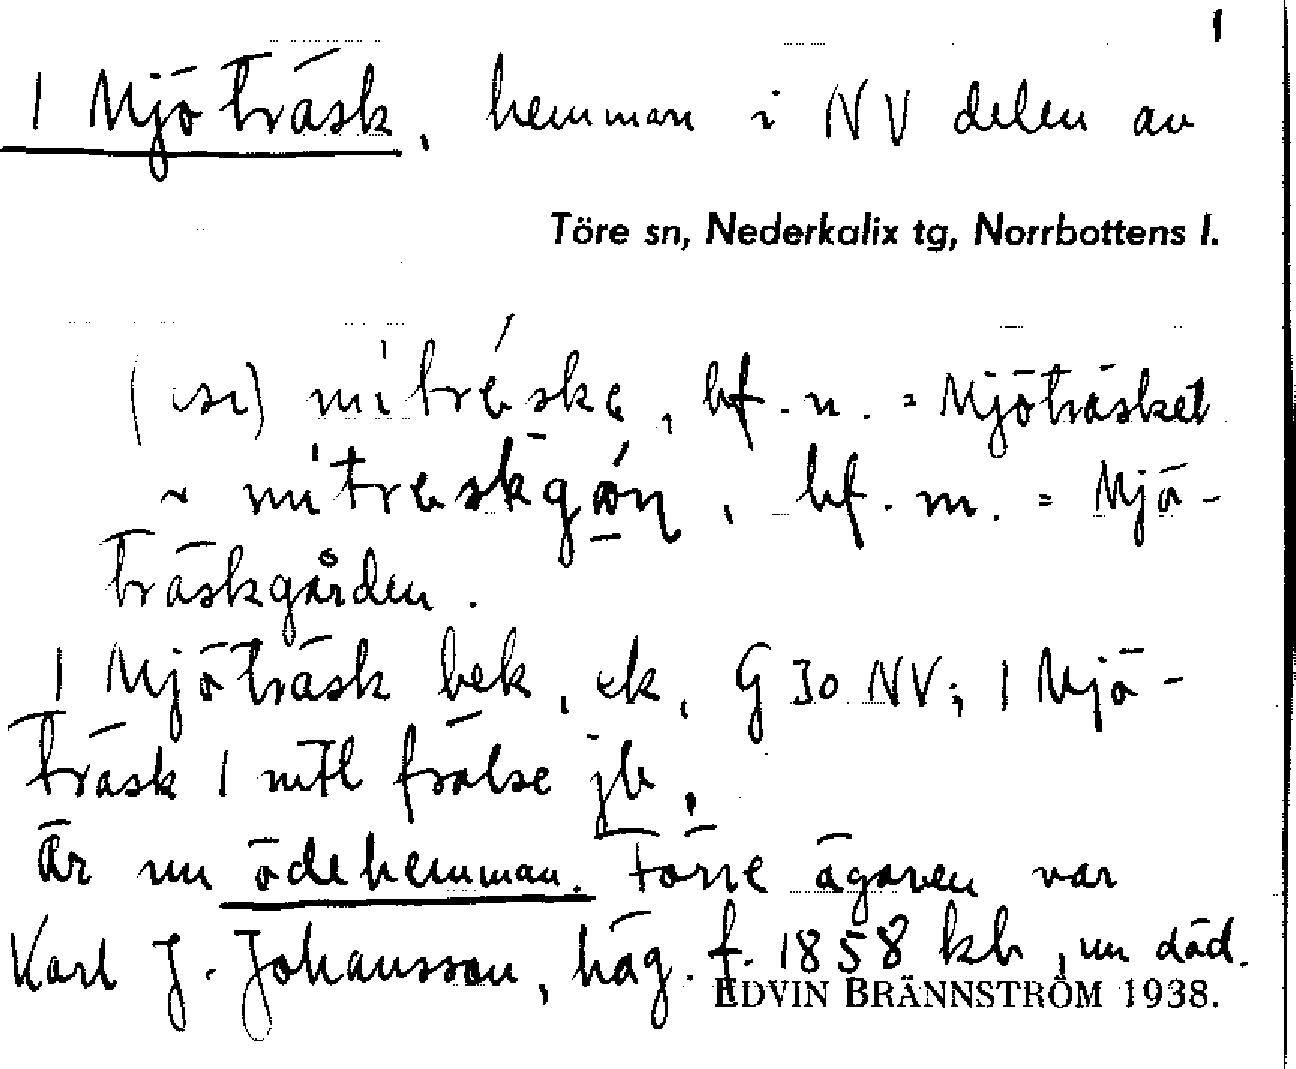 1
1 Mjöträsk, hemman i NV delen av
Töre sn, Nederkalix tg, Norrbottens l.
bf. n. = Mjöträsket
~ bf. m. = Mjö-
träskgården.
1 Mjöträsk bek, ek, G 30 NV; 1 Mjö-
träsk 1 mtl frälse jb,
Är nu ödehemman. Förre ägaren var
Karl J. Johansson, häg. f. 1858 kb, nu död.
EDVIN BRÄNNSTRÖM 1938.